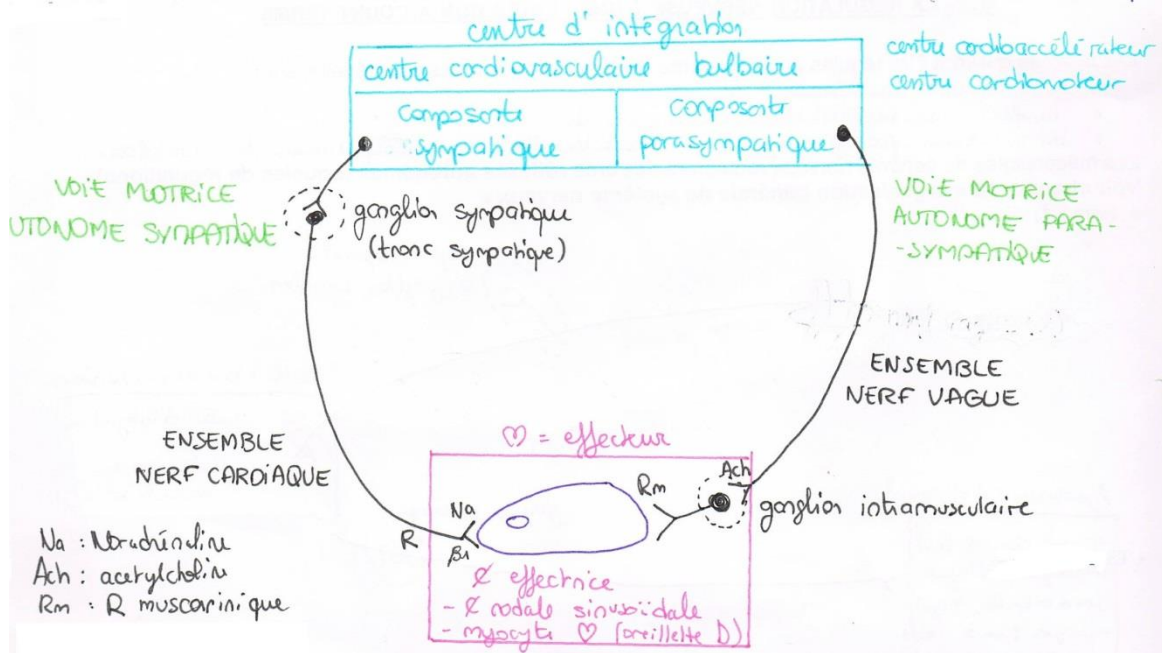 centre d'intégration
centre cordiovasculaire bulbaire
composante sympatique
composante parasympatique
centre cardioaccélérateur
centre cardiomoteur
VOIE MOTRICE
UTONOME SYMPATIQUE
ganglion sympatique
(tronc sympatique)
VOIE MOTRICE
AUTONOME PARA-
-SYMPATIQUE
ENSEMBLE
NERF VAGUE
ENSEMBLE
NERF CARDIAQUE
♡ = effecteur
Ach
Rm
Na
ganglion intramusculaire
R
β1
¢ effectrice
- ¢ nodale sinusoïdale
- myocyte ♡ (oreillette D)
Na : Noradrénaline
Ach : acetylcholine
Rm : R muscarinique